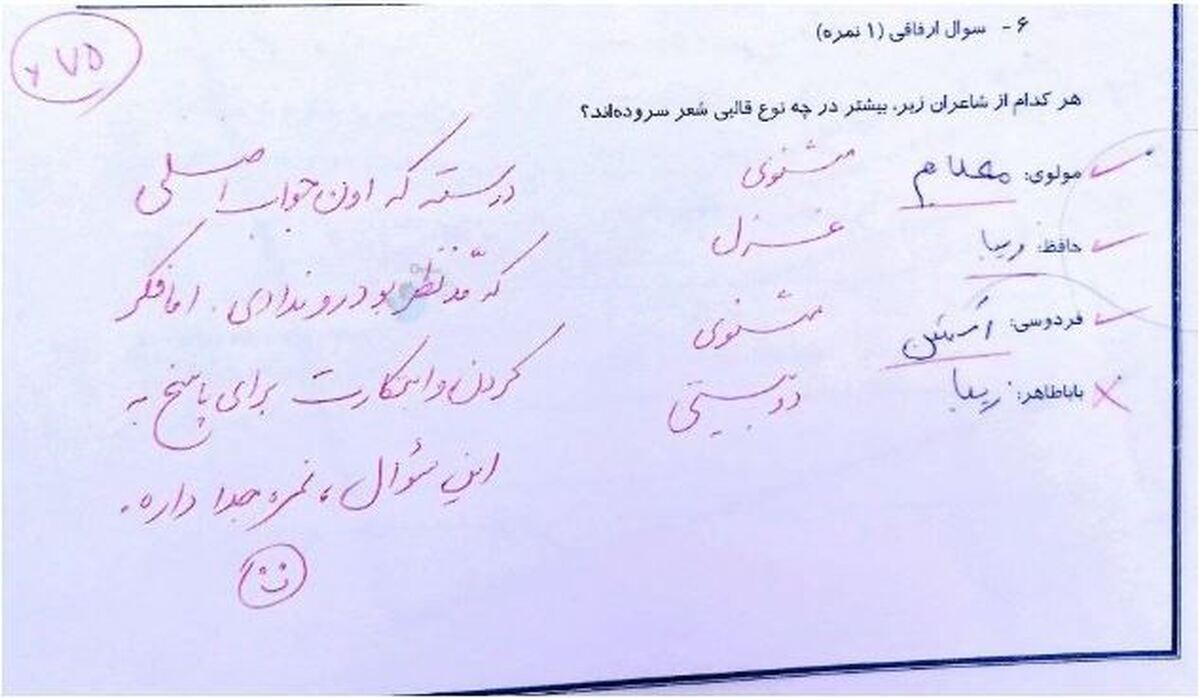 ۶- سوال ارفاقی (۱ نمره)
۷۵
هر کدام از شاعران زیر، بیشتر در چه نوع قالبی شعر سروده‌اند؟
مولوی: مثنوی
حافظ: زیبا غزل
فردوسی: مثنوی
باباطاهر: زیبا دوبیتی
درسته که اون جواب اصلی
که مدّ نظر بود رو ندادی. اما فکر
کردن و ابتکارت برای پاسخ به
این سؤال، نمره جدا داره.